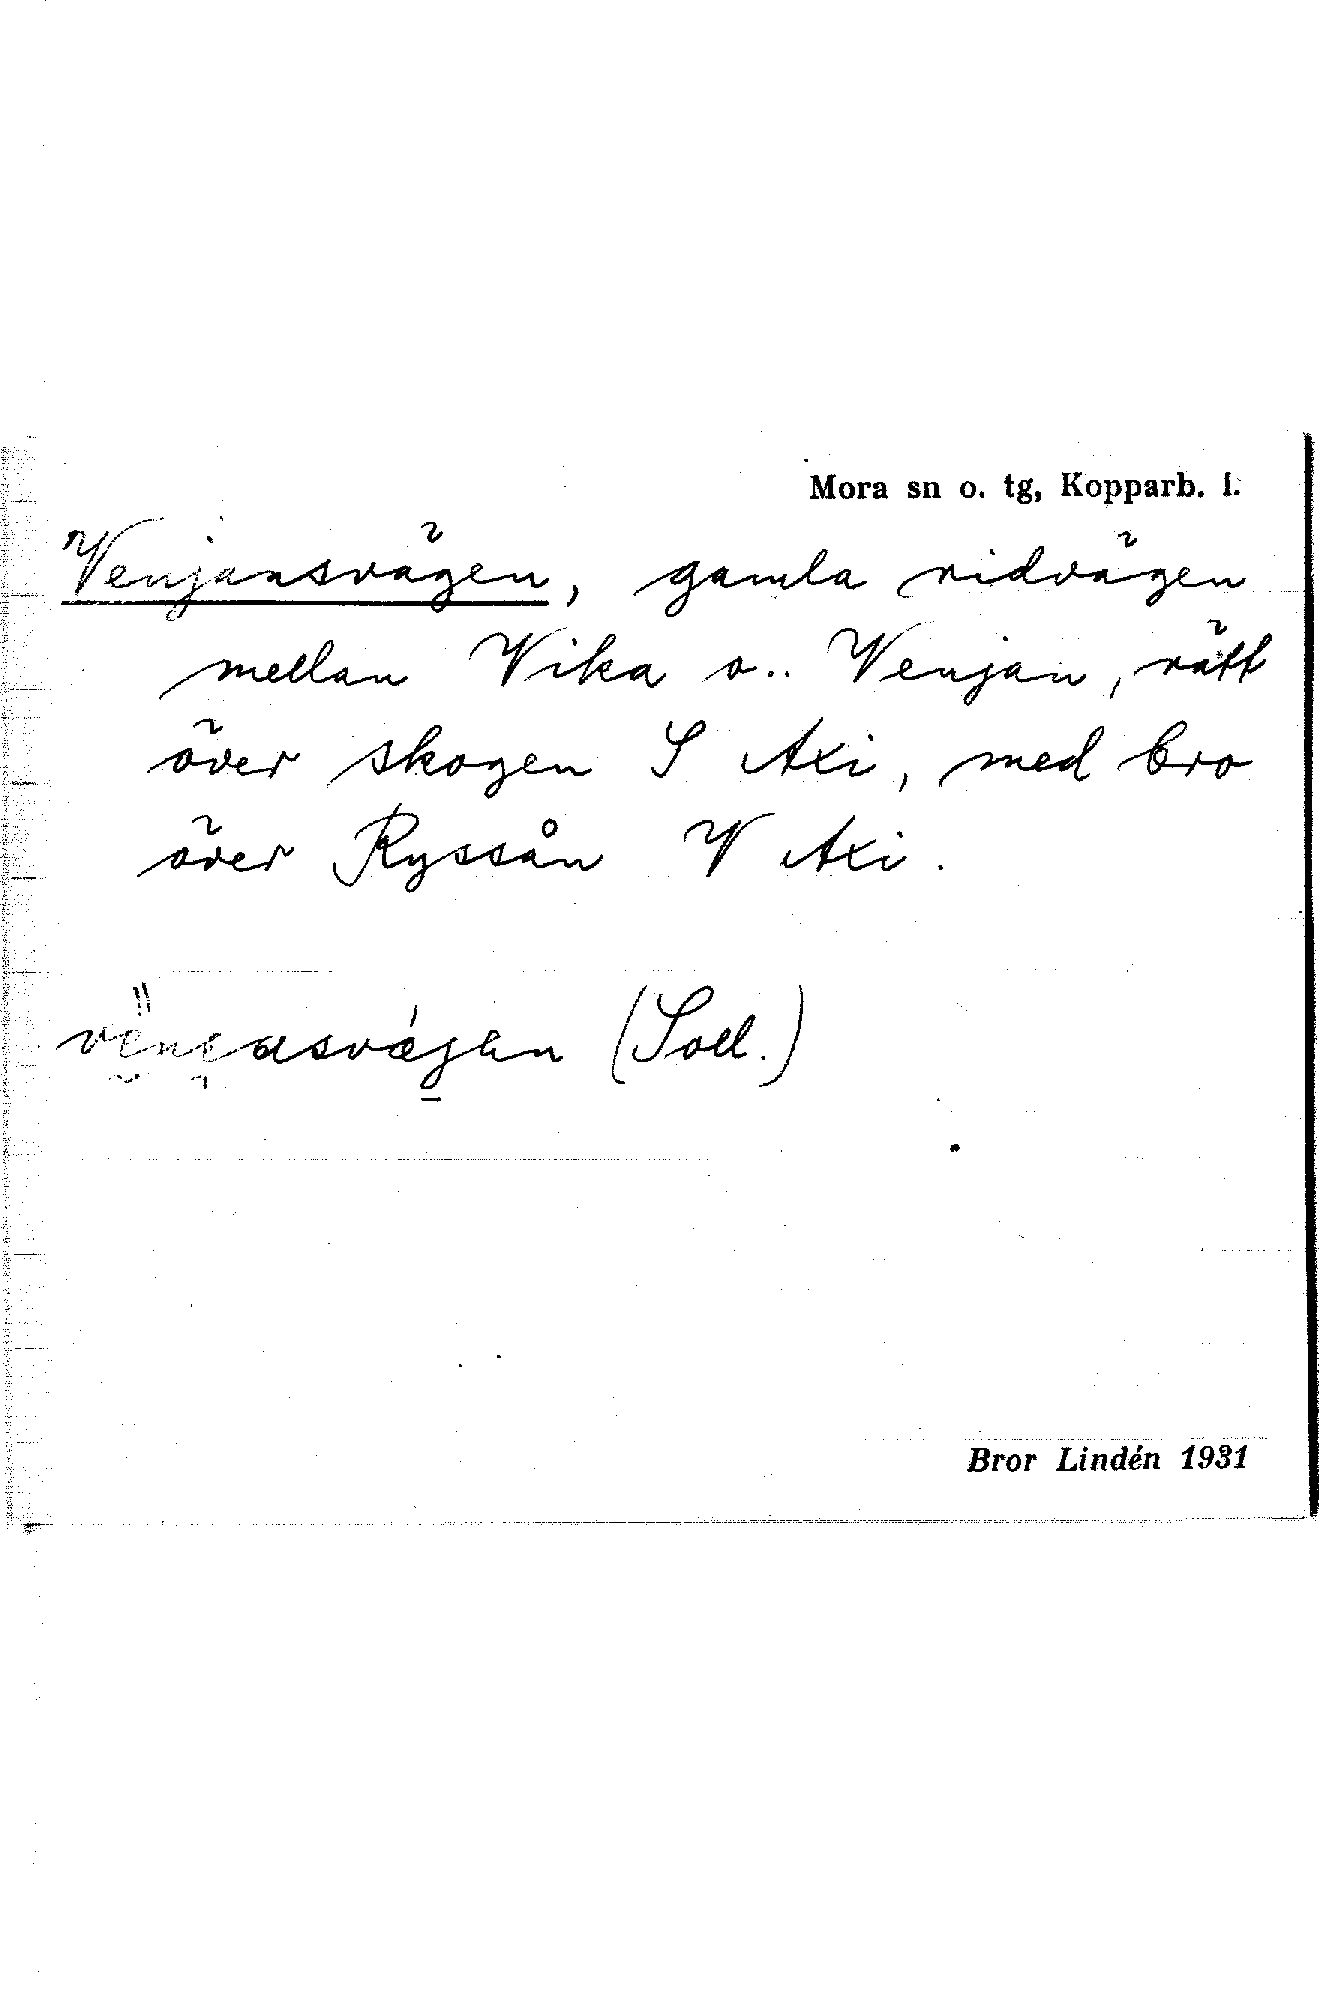 Mora sn o. tg, Kopparb. l.
Venjansvägen, gamla ridvägen
mellan Vika o.. Venjan, rätt
över skogen S Axi, med bro
över Ryssån V Axi.
(Soll.)
Bror Lindén 1931